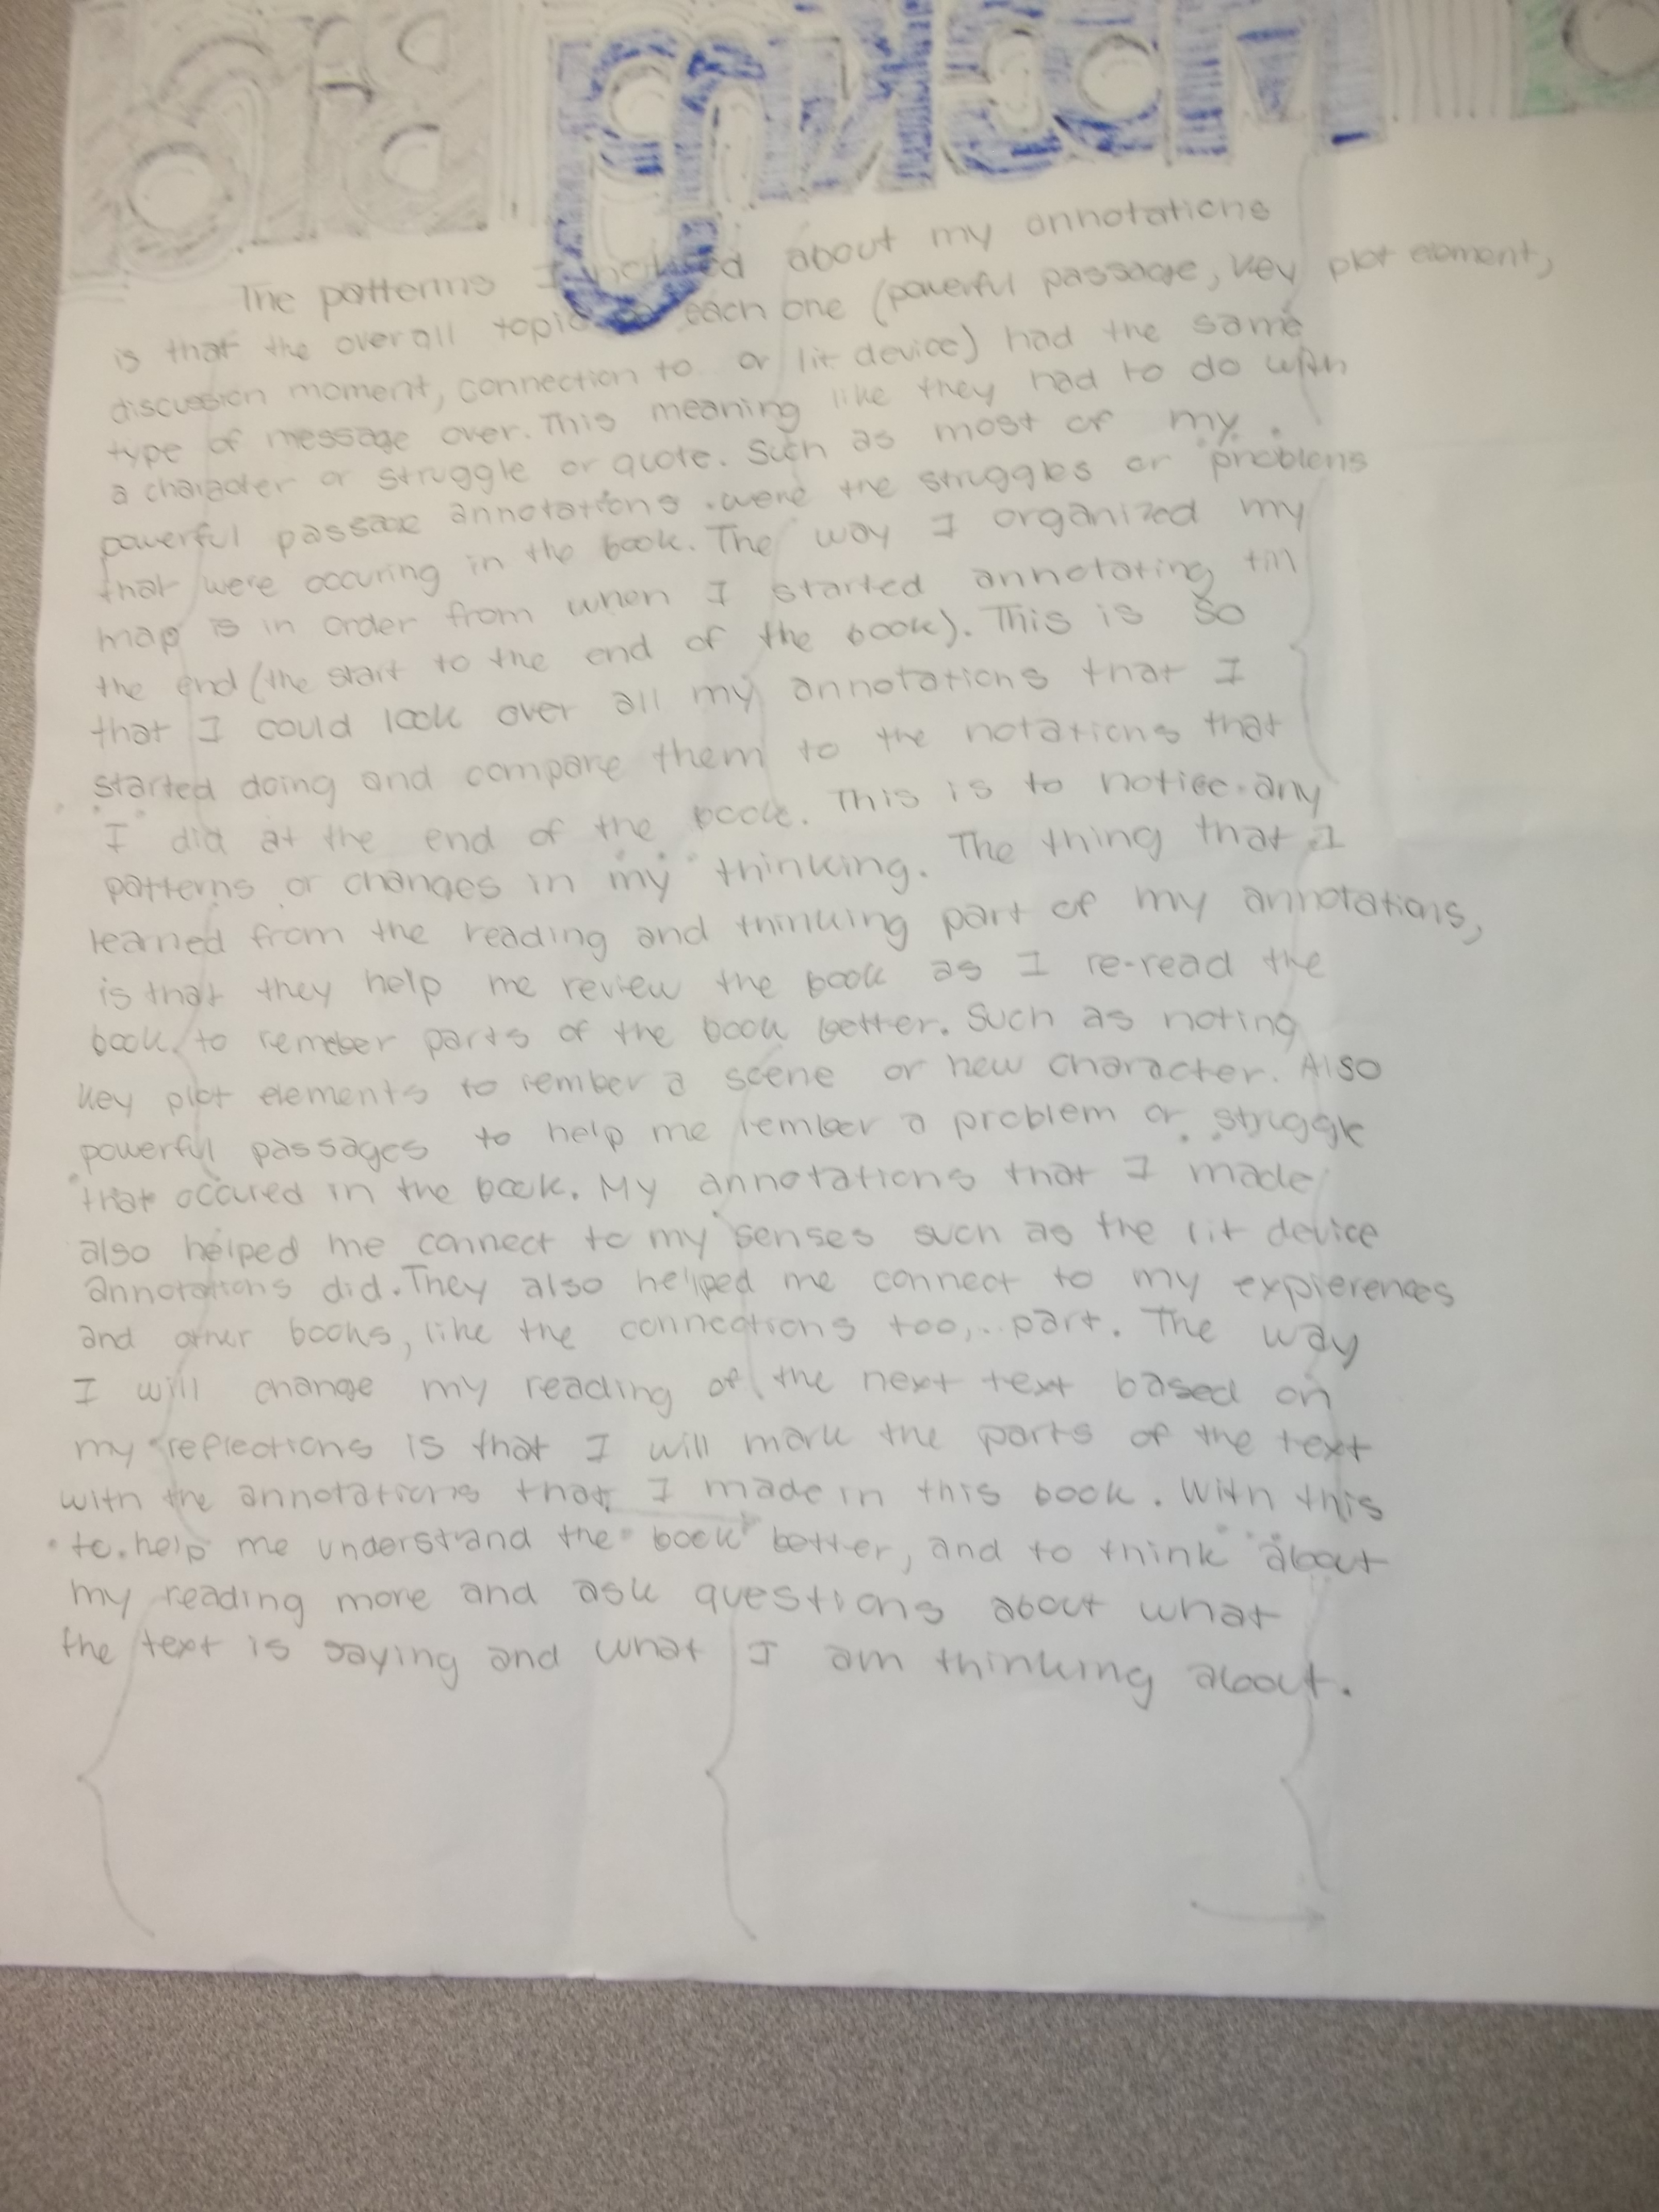 The patterns I noticed about my annotations
is that the overall topic each one (powerful passage, key plot element,
discussion moment, connection to or lit device) had the same
type of message over. This meaning like they had to do with
a character or struggle or quote. Such as most of my
powerful passage annotations were the struggles or problems
that were occuring in the book. The way I organized my
map is in order from when I started annotating till
the end (the start to the end of the book). This is so
that I could look over all my annotations that I
started doing and compare them to the notations that
I did at the end of the book. This is to notice any
patterns or changes in my thinking. The thing that I
learned from the reading and thinking part of my annotations,
is that they help me review the book as I re-read the
book, to remeber parts of the book better. Such as noting
key plot elements to rember a scene or new character. Also
powerful passages to help me rember a problem or struggle
that occured in the book. My annotations that I made
also helped me connect to my senses such as the lit device
annotations did. They also helped me connect to my expierences
and other books, like the connections too,.. part. The way
I will change my reading of the next text based on
my reflections is that I will mark the parts of the text
with the annotations that I made in this book. With this
to help me understand the book better, and to think about
my reading more and ask questions about what
the text is saying and what I am thinking about.